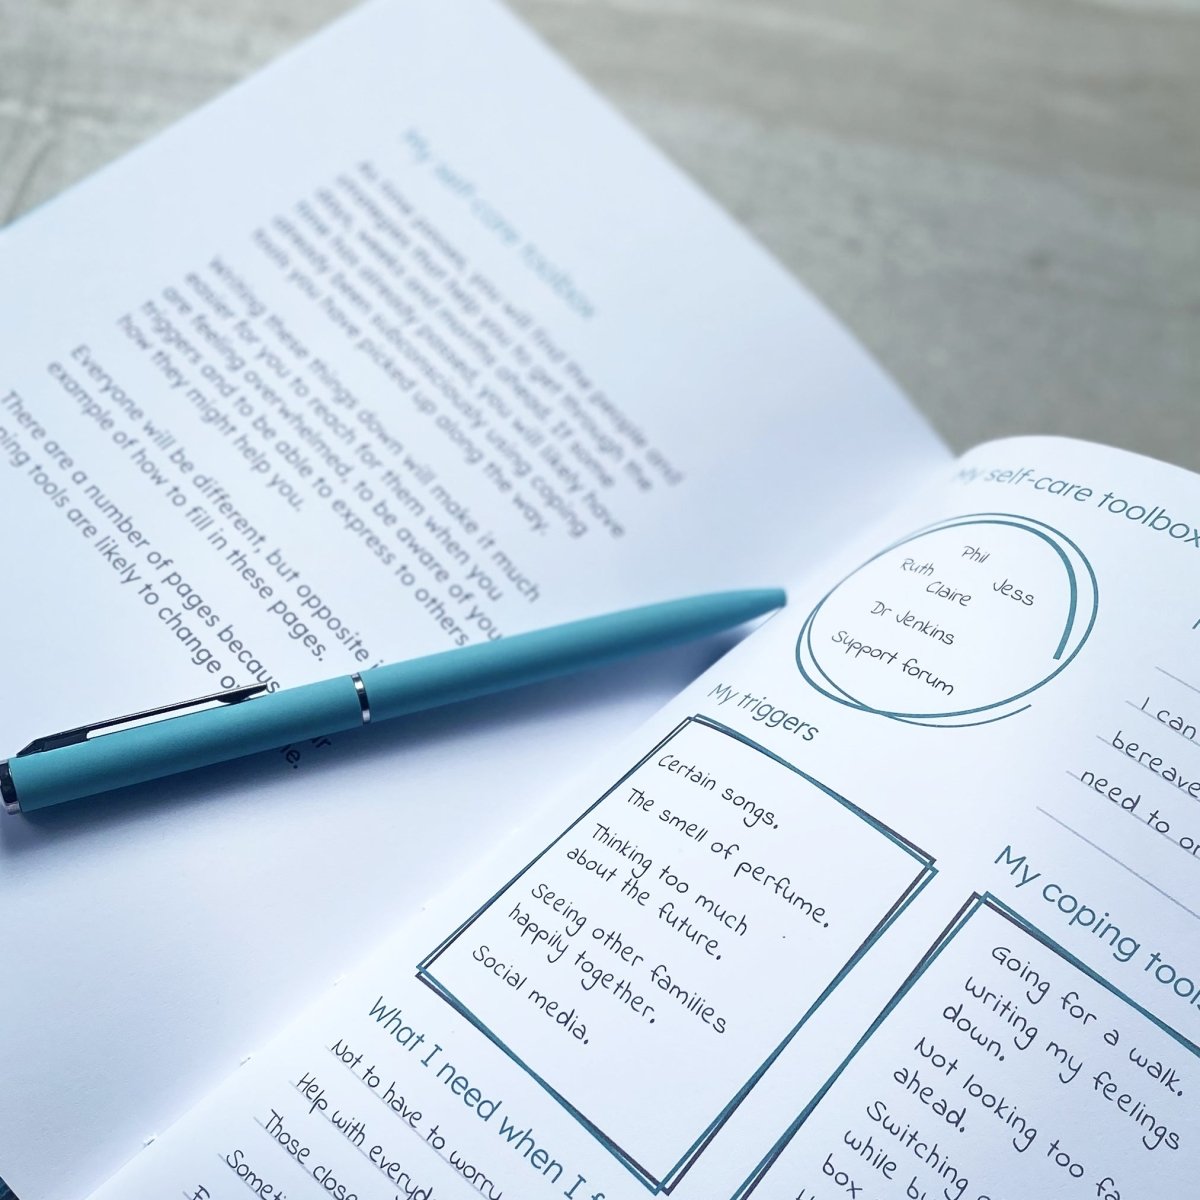 My self-care toolbox
As time passes, you will find the people and
strategies that help you to get through the
days, weeks and months ahead. If some
time has already passed, you will likely have
already been subconsciously using coping
tools you have picked up along the way.
Writing these things down will make it much
easier for you to reach for them when you
are feeling overwhelmed, to be aware of your
triggers and to be able to express to others
how they might help you.
Everyone will be different, but opposite
example of how to fill in these pages.
There are a number of pages
tools are likely to change
My self-care toolbox
Phil
Ruth
Jess
Claire
Dr Jenkins
Support forum
My triggers
Certain songs.
The smell of perfume.
Thinking too much
about the future.
Seeing other families
happily together.
Social media.
What I need when I
Not to have to worry
Help with
Those
I can
need to
My coping
Going for a walk.
Writing my feelings
down.
Not looking too
ahead.
Switching
while
box